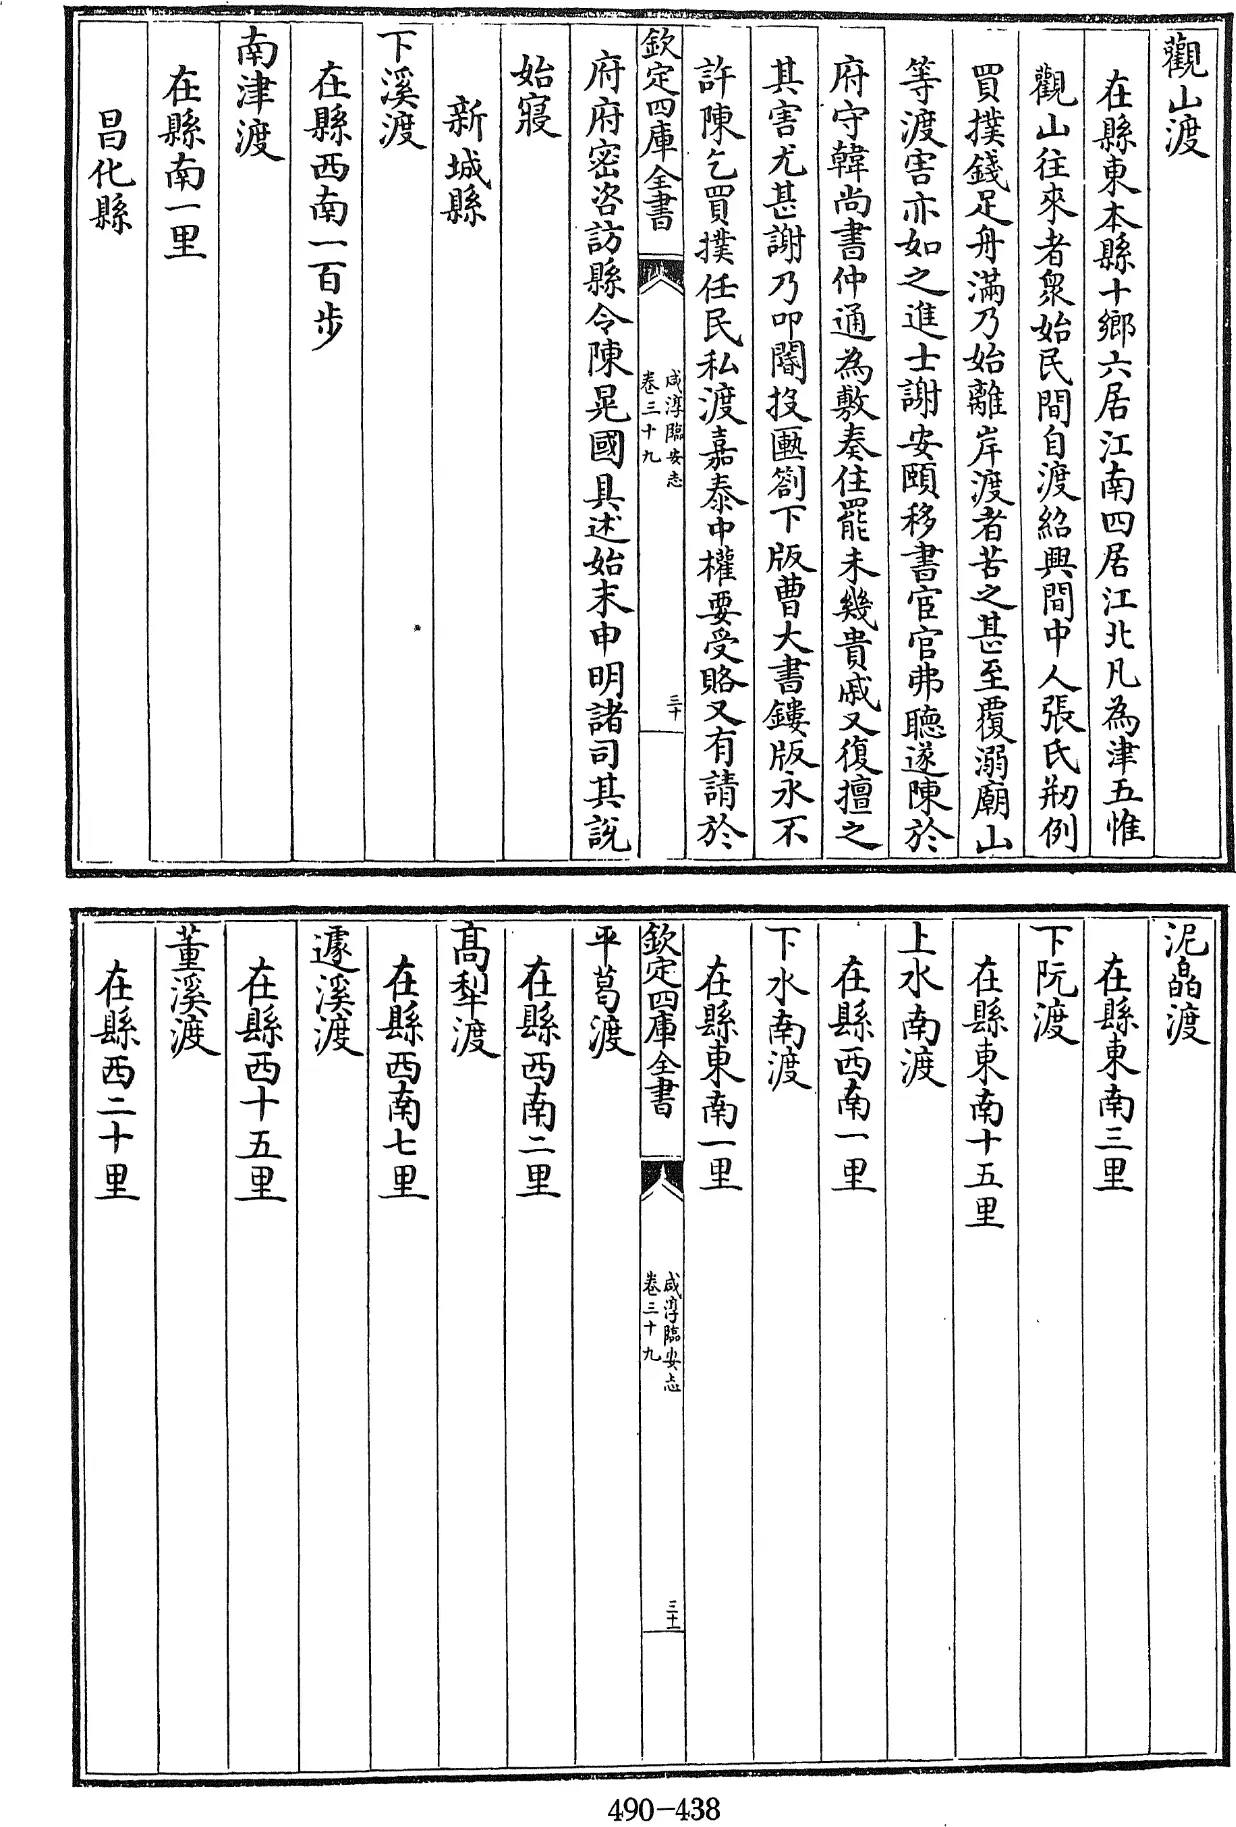 觀山渡
在縣東本縣十鄉六居江南四居江北凡為津五惟
觀山往來者衆始民間自渡紹興間中人張氏刱例
買撲錢足舟滿乃始離岸渡者苦之甚至覆溺廟山
等渡害亦如之進士謝安頤移書宦官弗聽遂陳於
府守韓尚書仲通為敷奏住罷未幾貴戚又復擅之
其害尤甚謝乃叩閽投匭劄下版曹大書鏤版永不
許陳乞買撲任民私渡嘉泰中權要受賂又有請於
欽定四庫全書
咸淳臨安志
卷三十九
三十
府府密咨訪縣令陳晃國具述始末申明諸司其說
始寢
新城縣
下溪渡
在縣西南一百步
南津渡
在縣南一里
昌化縣
泥皛渡
在縣東南三里
下阮渡
在縣東南十五里
上水南渡
在縣西南一里
下水南渡
在縣東南一里
欽定四庫全書
咸淳臨安志
卷三十九
三十一
平葛渡
在縣西南二里
髙犁渡
在縣西南七里
遽溪渡
在縣西十五里
董溪渡
在縣西二十里
490-438